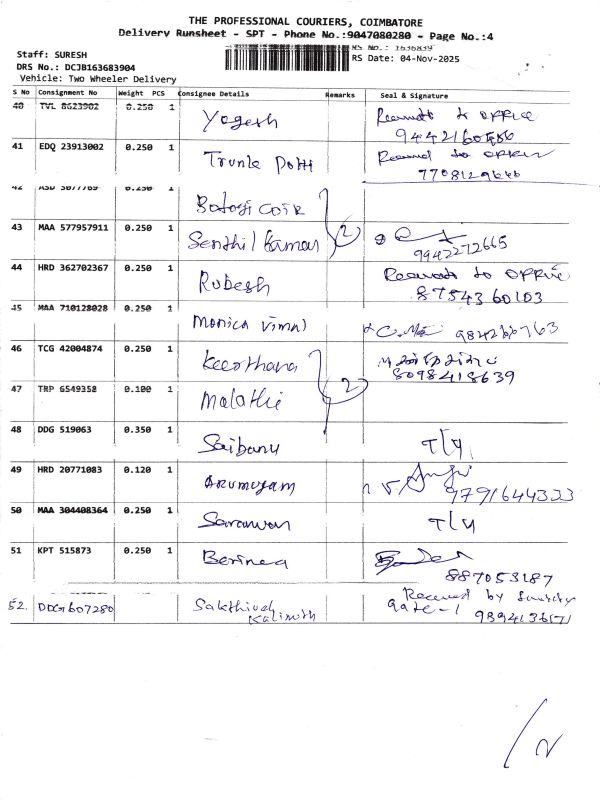 THE PROFESSIONAL COURIERS, COIMBATORE
Delivery Runsheet - SPT - Phone No.:9047080280 - Page No.:4
Staff: SURESH
RS No.: 1636839
DRS No.: DCJB163683904
RS Date: 04-Nov-2025
Vehicle: Two Wheeler Delivery
S No Consignment No Weight PCS Consignee Details Remarks Seal & Signature
40 TVL 8623902 0.250 1 Yogesh
41 EDQ 23913002 0.250 1 7708129666
42 ASD 3077769 0.250 1
43 MAA 577957911 0.250 1 Senthil Kumar 2 9942272665
44 HRD 362702367 0.250 1 Rubesh to office
8754360103
45 MAA 710128028 0.250 1 Monica Vimal
46 TCG 42004874 0.250 1 Keerthana 8098418639
47 TRP 6549358 0.100 1 Malathi 2
48 DDG 519063 0.350 1 Saibanu T/y
49 HRD 20771083 0.120 1 Arumugam 9791644323
50 MAA 304408364 0.250 1 Saravan T/y
51 KPT 515873 0.250 1 887053187
52. DDG607280 Sakthivel Received by
gate-1